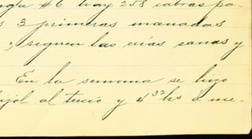 #6 hay 258 cabras pa-
3 primeras manadas
siguen las crías sanas y
En la semana se hizo
al tercio y 4 32 hs a me-